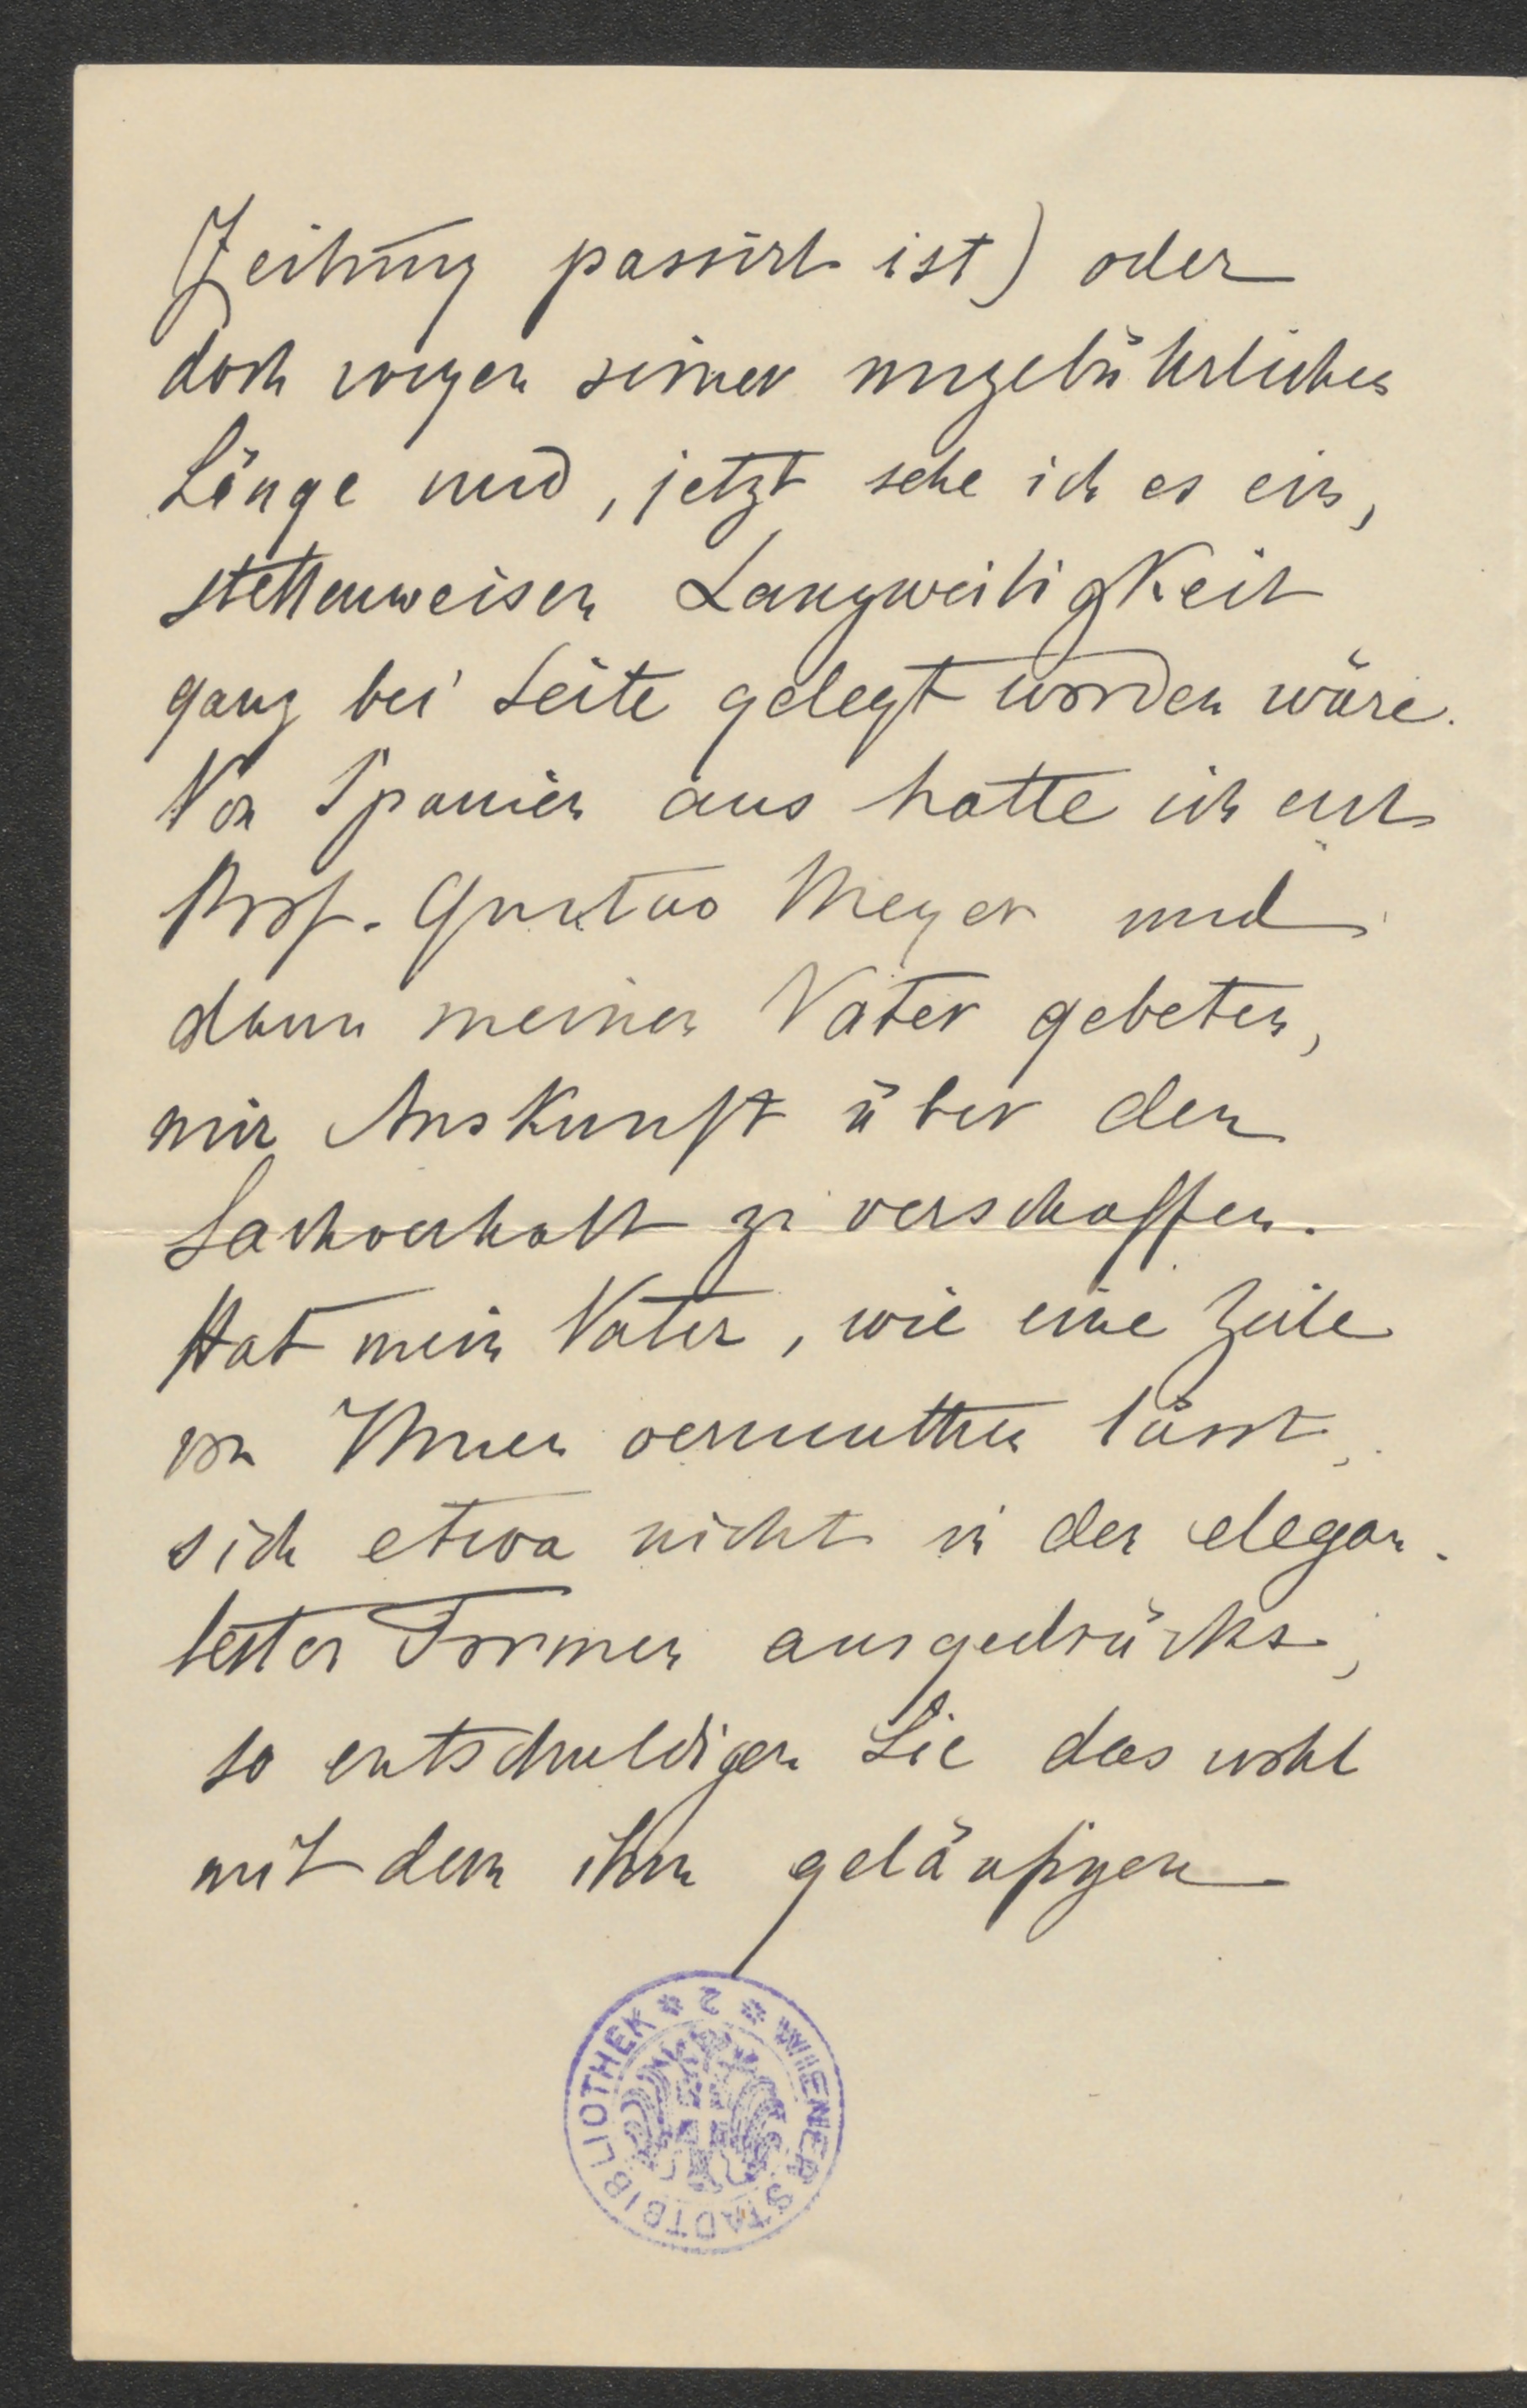 Zeitung passirt ist) oder
doch wegen seiner ungebührlichen
Länge und, jetzt sehe ich es ein,
stellenweisen Langweiligkeit
ganz bei Seite gelegt worden wäre.
Von Spanien aus hatte ich erst
Prof. Gustav Meyer und
dann meinen Vater gebeten,
mir Auskunft über den
Sachverhalt zu verschaffen.
Hat mein Vater, wie eine Zeile
von Ihnen vermuthen lässt,
sich etwa nicht in den elegan-
testen Formen ausgedrückt,
so entschuldigen Sie das wohl
mit dem ihm geläufigen
WIENER STADTBIBLIOTHEK * 2 *